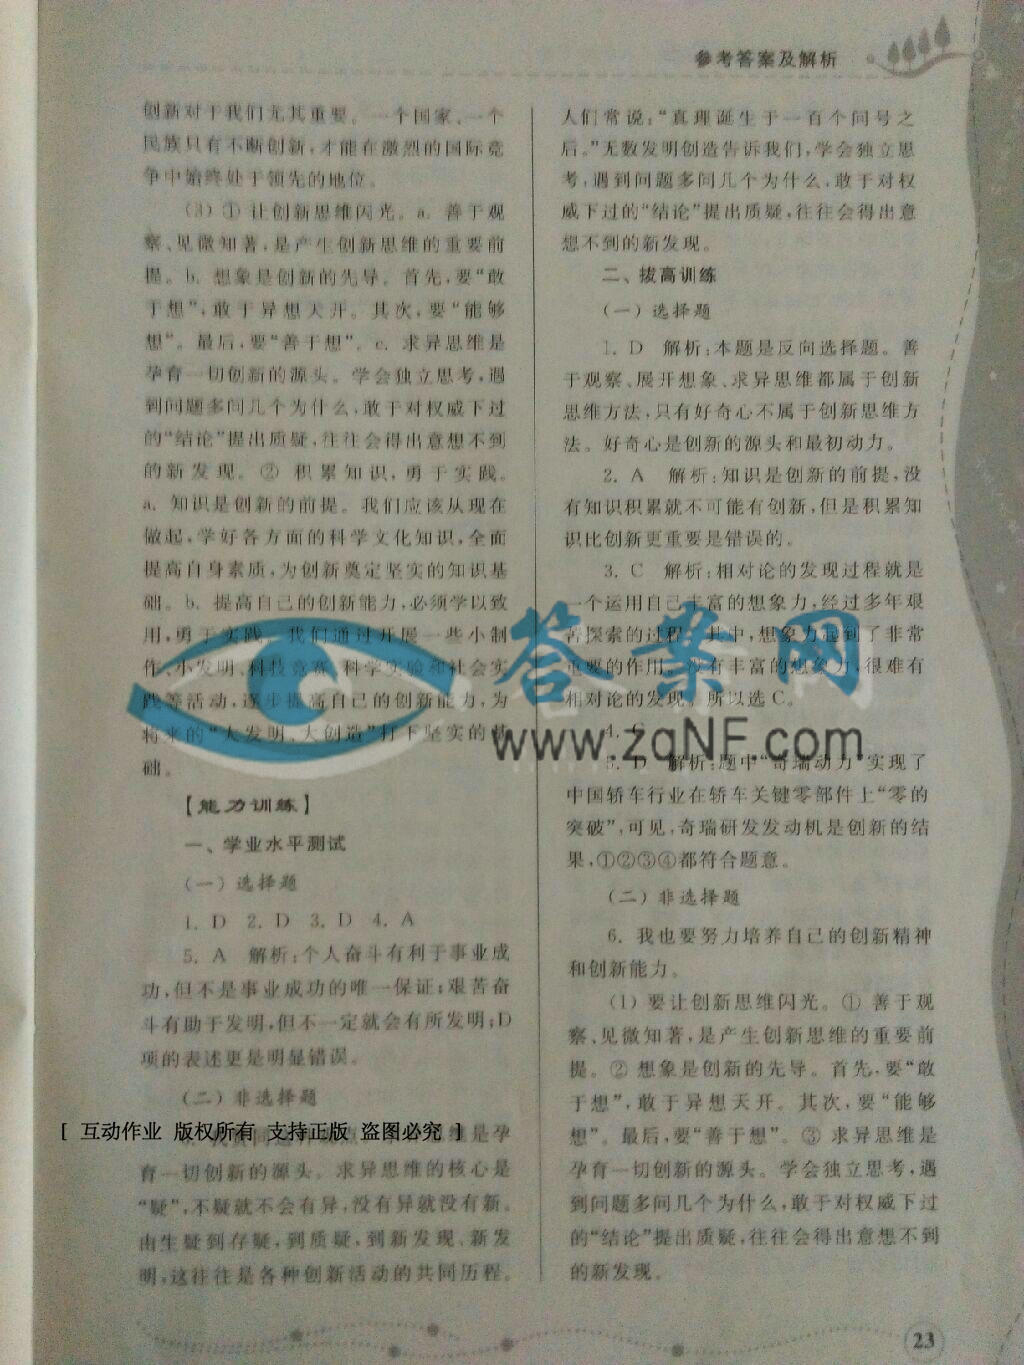 参考答案及解析
创新对于我们尤其重要。一个国家、一个
民族只有不断创新,才能在激烈的国际竞
争中始终处于领先的地位。
(3) ① 让创新思维闪光。a. 善于观
察、见微知著,是产生创新思维的重要前
提。b. 想象是创新的先导。首先,要“敢
于想”,敢于异想天开。其次,要“能够
想”。最后,要“善于想”。c. 求异思维是
孕育一切创新的源头。学会独立思考,遇
到问题多问几个为什么,敢于对权威下过
的“结论”提出质疑,往往会得出意想不到
的新发现。② 积累知识,勇于实践。
a. 知识是创新的前提。我们应该从现在
做起,学好各方面的科学文化知识,全面
提高自身素质,为创新奠定坚实的知识基
础。b. 提高自己的创新能力,必须学以致
用,勇于实践。我们通过开展一些小制
作、小发明、科技竞赛、科学实验和社会实
践等活动,逐步提高自己的创新能力,为
将来的“大发明、大创造”打下坚实的基
础。
【能力训练】
一、学业水平测试
(一) 选择题
1. D 2. D 3. D 4. A
5. A 解析:个人奋斗有利于事业成
功,但不是事业成功的唯一保证;艰苦奋
斗有助于发明,但不一定就会有所发明;D
项的表述更是明显错误。
(二) 非选择题
[ 互动作业 版权所有 支持正版 盗图必究 ]
维是孕
育一切创新的源头。求异思维的核心是
“疑”,不疑就不会有异,没有异就没有新。
由生疑到存疑,到质疑,到新发现、新发
明,这往往是各种创新活动的共同历程。
人们常说:“真理诞生于一百个问号之
后。”无数发明创造告诉我们,学会独立思
考,遇到问题多问几个为什么,敢于对权
威下过的“结论”提出质疑,往往会得出意
想不到的新发现。
二、拔高训练
(一) 选择题
1. D 解析:本题是反向选择题。善
于观察、展开想象、求异思维都属于创新
思维方法,只有好奇心不属于创新思维方
法。好奇心是创新的源头和最初动力。
2. A 解析:知识是创新的前提,没
有知识积累就不可能有创新,但是积累知
识比创新更重要是错误的。
3. C 解析:相对论的发现过程就是
一个运用自己丰富的想象力,经过多年艰
苦探索的过程。其中,想象力起到了非常
重要的作用。没有丰富的想象力,很难有
相对论的发现。所以选C。
4. C
5. D 解析:题中“奇瑞动力”实现了
中国轿车行业在轿车关键零部件上“零的
突破”,可见,奇瑞研发发动机是创新的结
果,①②③④都符合题意。
(二) 非选择题
6. 我也要努力培养自己的创新精神
和创新能力。
(1) 要让创新思维闪光。① 善于观
察、见微知著,是产生创新思维的重要前
提。② 想象是创新的先导。首先,要“敢
于想”,敢于异想天开。其次,要“能够
想”。最后,要“善于想”。③ 求异思维是
孕育一切创新的源头。学会独立思考,遇
到问题多问几个为什么,敢于对权威下过
的“结论”提出质疑,往往会得出意想不到
的新发现。
答案网
www.zqNF.com
23